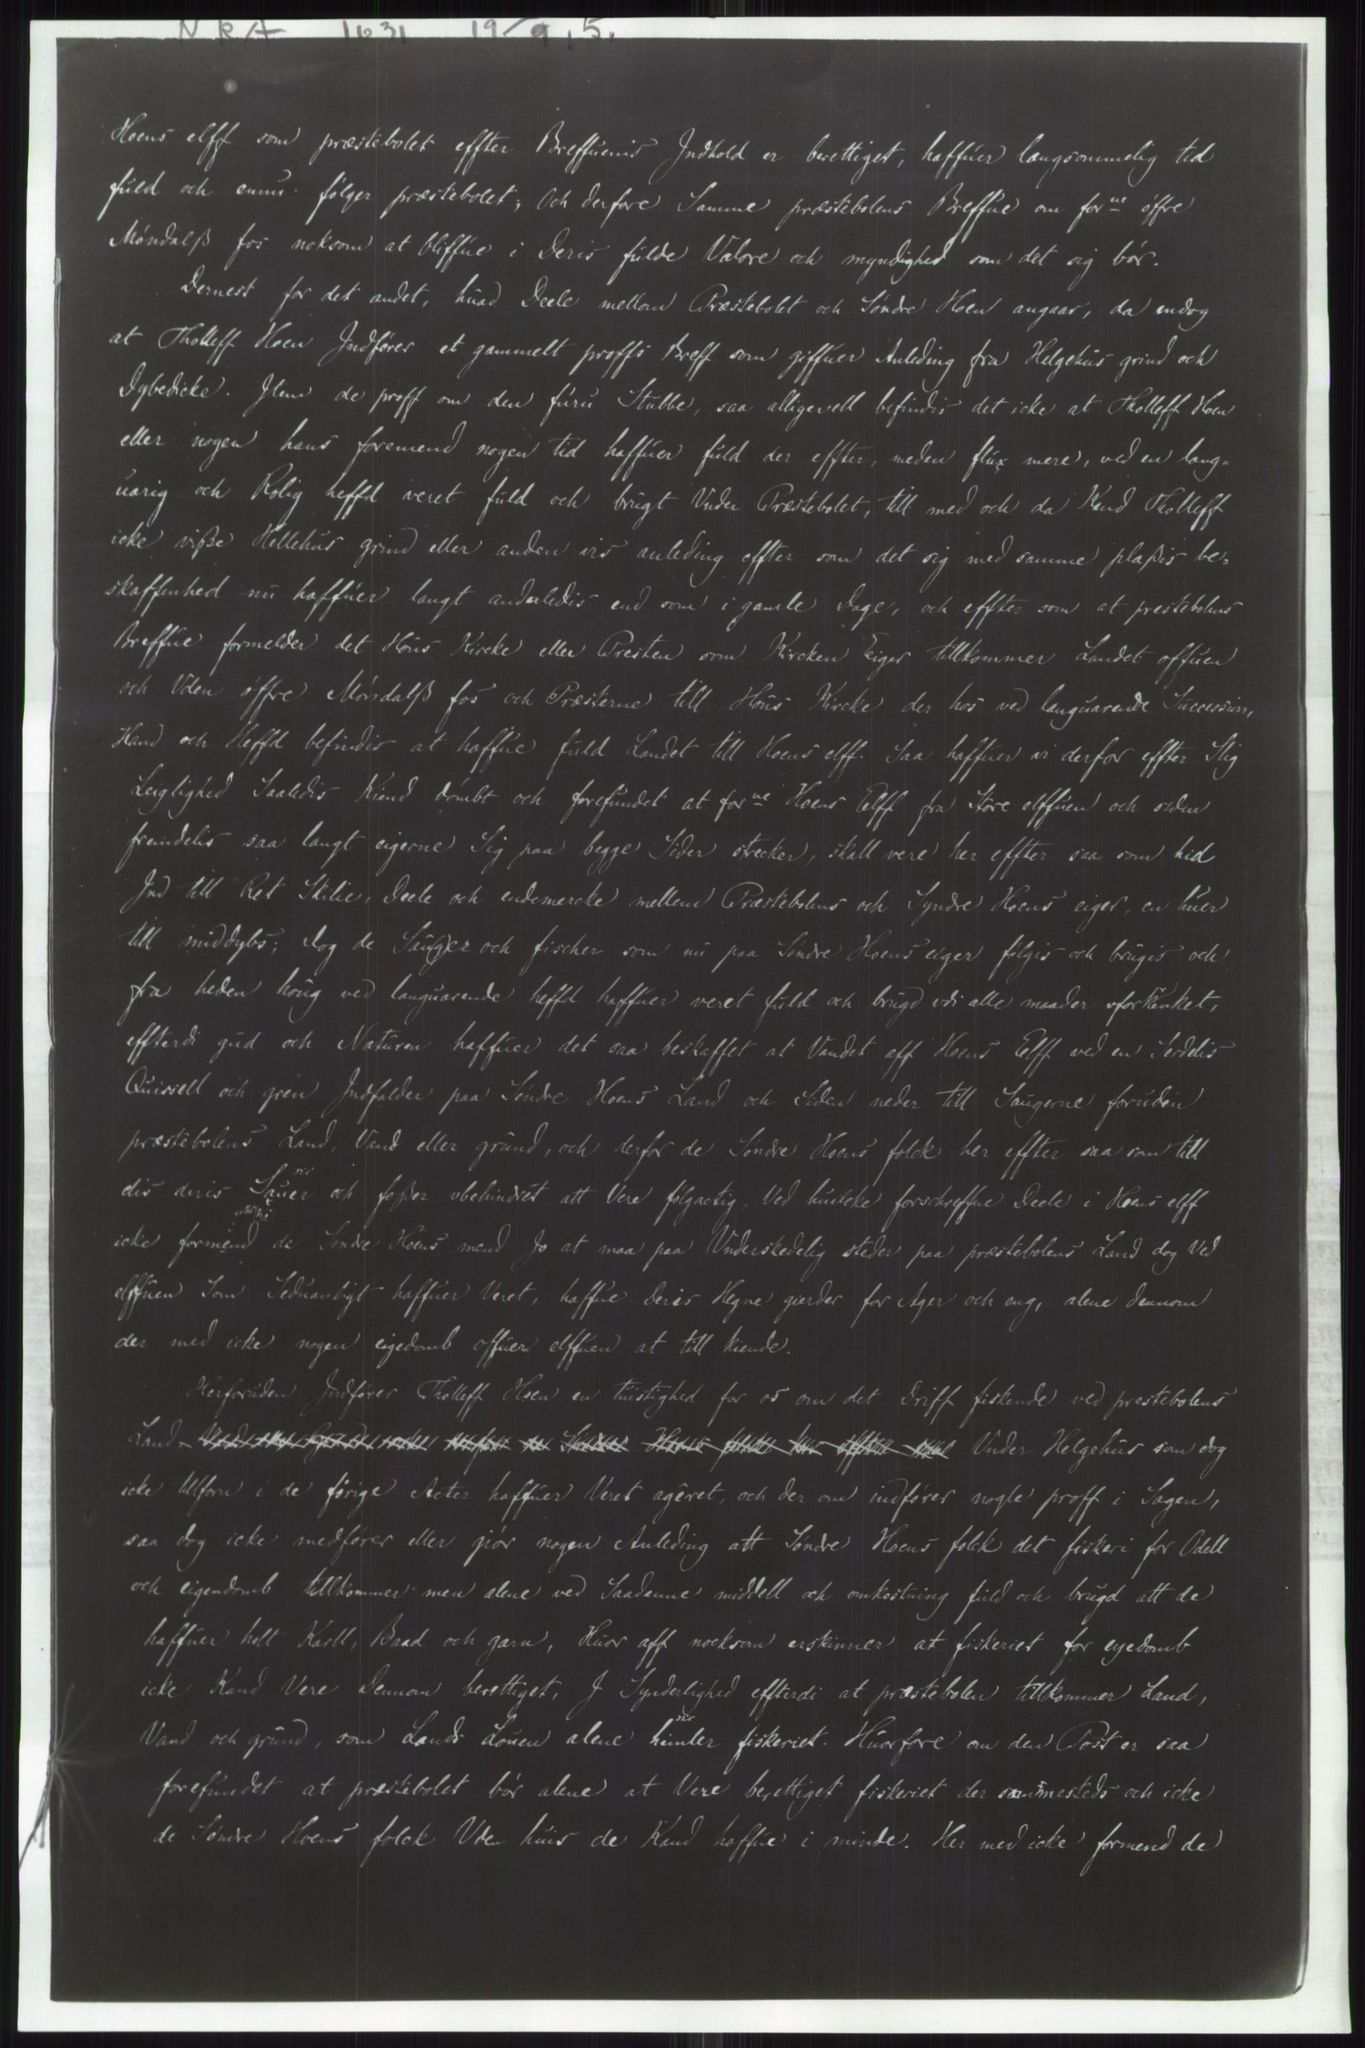 N R A 1631 19/9, 5.
Hoens elff som præstebolet effter Breffuenis Jndhold er berettiget, haffuer langsommelig tid
fuld och ennu følger præstebolet; Och derfore Samme præstebolens Breffue om forne øffre
Møndalß fos noksom at bliffue i Deris fulde Valore och myndighed som det sig bør.
Dernest for det andet, huad Deele mellom Præstebolet och Søndre Hoen angaar, da endog
at Tholleff Hoen Jndfører et gammelt proffs Breff som giffuer Anleding fra Helgehus grind och
Dybedicke. Jtem de proff om den furu Stubbe, saa alligevell befindis det icke at Tholleff Hoen
eller nogen hans foremend nogen tid haffuer fuld der effter, meden flux mere, ved en lang-
uarig och Rolig heffd veret fuld och brugt Vnder Præstebolet, till med och da Kand Tholleff
icke viße Hellehus grind eller anden vis anleding effter som det sig med samme plaßis be-
skaffenhed nu haffuer langt anderledis end som i gamle Dage, och effter som at prestebolens
Breffue formelder det Hous Kircke eller Presten som Kircken Eiger tillkommer Landet offuen
och Vden øffre Møndalß fos och Præsterne till Hous Kircke der hos ved languarende Succession,
Hand och Heffd befindis at haffue fuld Landet till Hoens elff. Saa haffuer vi derfor effter Slig
Leiglighed Saaledis Kiend dømbt och forefundet at forne Hoens Elff fra Store elffuen och siden
fremdelis saa langt eigerne Sig paa begge Sider strecker, skall vere her effter saa som hid
Jnd till Ret Skilie, Deele och endemercke mellem Præstebolens och Syndre Hoens eiger, en huer
till middybs; dog de Saug)er och fischer som nu paa Søndre Hoens eiger følgis och brugis och
fra heden houg ved languarende heffd haffuer veret fuld och brugd vdi alle maader vforkrenket,
effterdi gud och Naturen haffuer det saa beskaffet at Vandet aff Hoens Elff ved en Serdelis
Quissell och gren Jndfalder paa Søndre Hoens Land och Siden neder till Saugerne foruden
præstebolens Land, Vand eller grund, och derfor de Søndre Hoens folck her effter saa som till
dis deris Sauer sic och foßer vbehindret att Vere følgactig, Ved huilcke forschreffne Deele i Hoens elff
icke formend de Søndre Hoens mend Jo at maa paa Vnderskedelig steder paa præstebolens Land dog Ved
elffuen Som Seduanligt haffuer Veret, haffue deris Hegne gierder for Ager och eng, alene dennom
der med icke nogen eigedomb offuer elffuen at till kiende.
Herforuden Jndfører Tholleff Hoen en tuistighed for os om det Driff fiskende ved prestebolens
Land Vnder Helgehus som dog
icke tillforn i de førige Acter haffuer Veret ageret, och der om indfører nogle proff i Sagen,
saa dog icke medfører eller giør nogen Anleding att Søndre Hoens folck det fiskeri for Odell
och eigendomb tillkommer men alene ved Saadanne middell och omkostning fuld och brugd att de
haffuer holt Kastt, Baad och garn, Huor aff nocksom erskinner at fiskeriet for eyedomb
icke Kand Vere Dennom berettiget, J Synderlighed effterdi at præstebolen tillkommer Land,
Vand och grund, som Lands Louen alene himler sic fiskeriet. Huorfore om den Post er saa
forefundet at præstebolet bør alene at Vere berettiget fiskeriet der sammesteds och icke
de Søndre Hoens folck Vten huis de Kand haffue i minde. Her med icke formend de